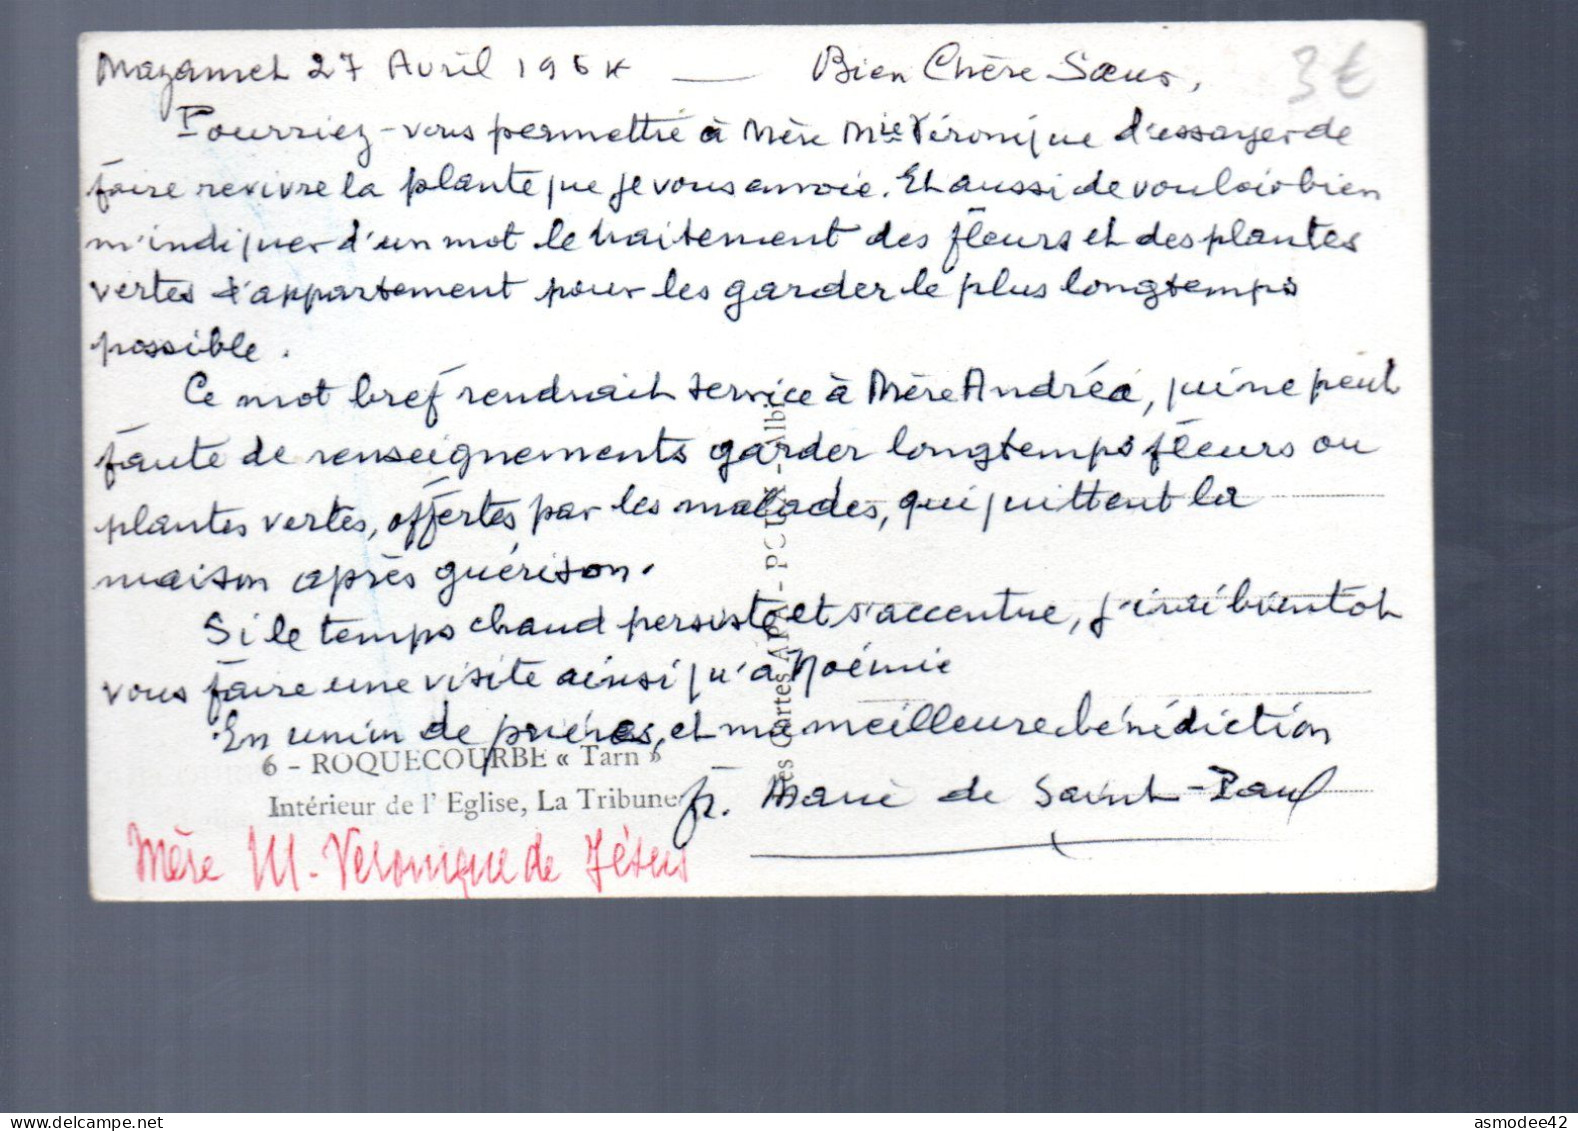 Mazamet 27 Avril 1964 — Bien Chère Sœur,
3€
Pourriez-vous permettre à Mère Mie Véronique d'essayer de
faire revivre la plante que je vous envoie. Et aussi de vouloir bien
m'indiquer d'un mot le traitement des fleurs et des plantes
vertes d'appartement pour les garder le plus longtemps
possible.
Ce mot bref rendrait service à Mère Andréa, qui ne peut
faute de renseignements garder longtemps fleurs ou
plantes vertes, offertes par les malades, qui quittent la
maison après guérison.
Si le temps chaud persiste et s'accentue, j'irai bientot
vous faire une visite ainsi qu'à Noémie
En union de prières, et ma meilleure bénédiction
fr. Marie de Saint-Paul
6 - ROQUECOURBE « Tarn »
Intérieur de l' Eglise, La Tribune
Mère M. Veronique de Jésus
Les Cartes - Albi
asmodee42